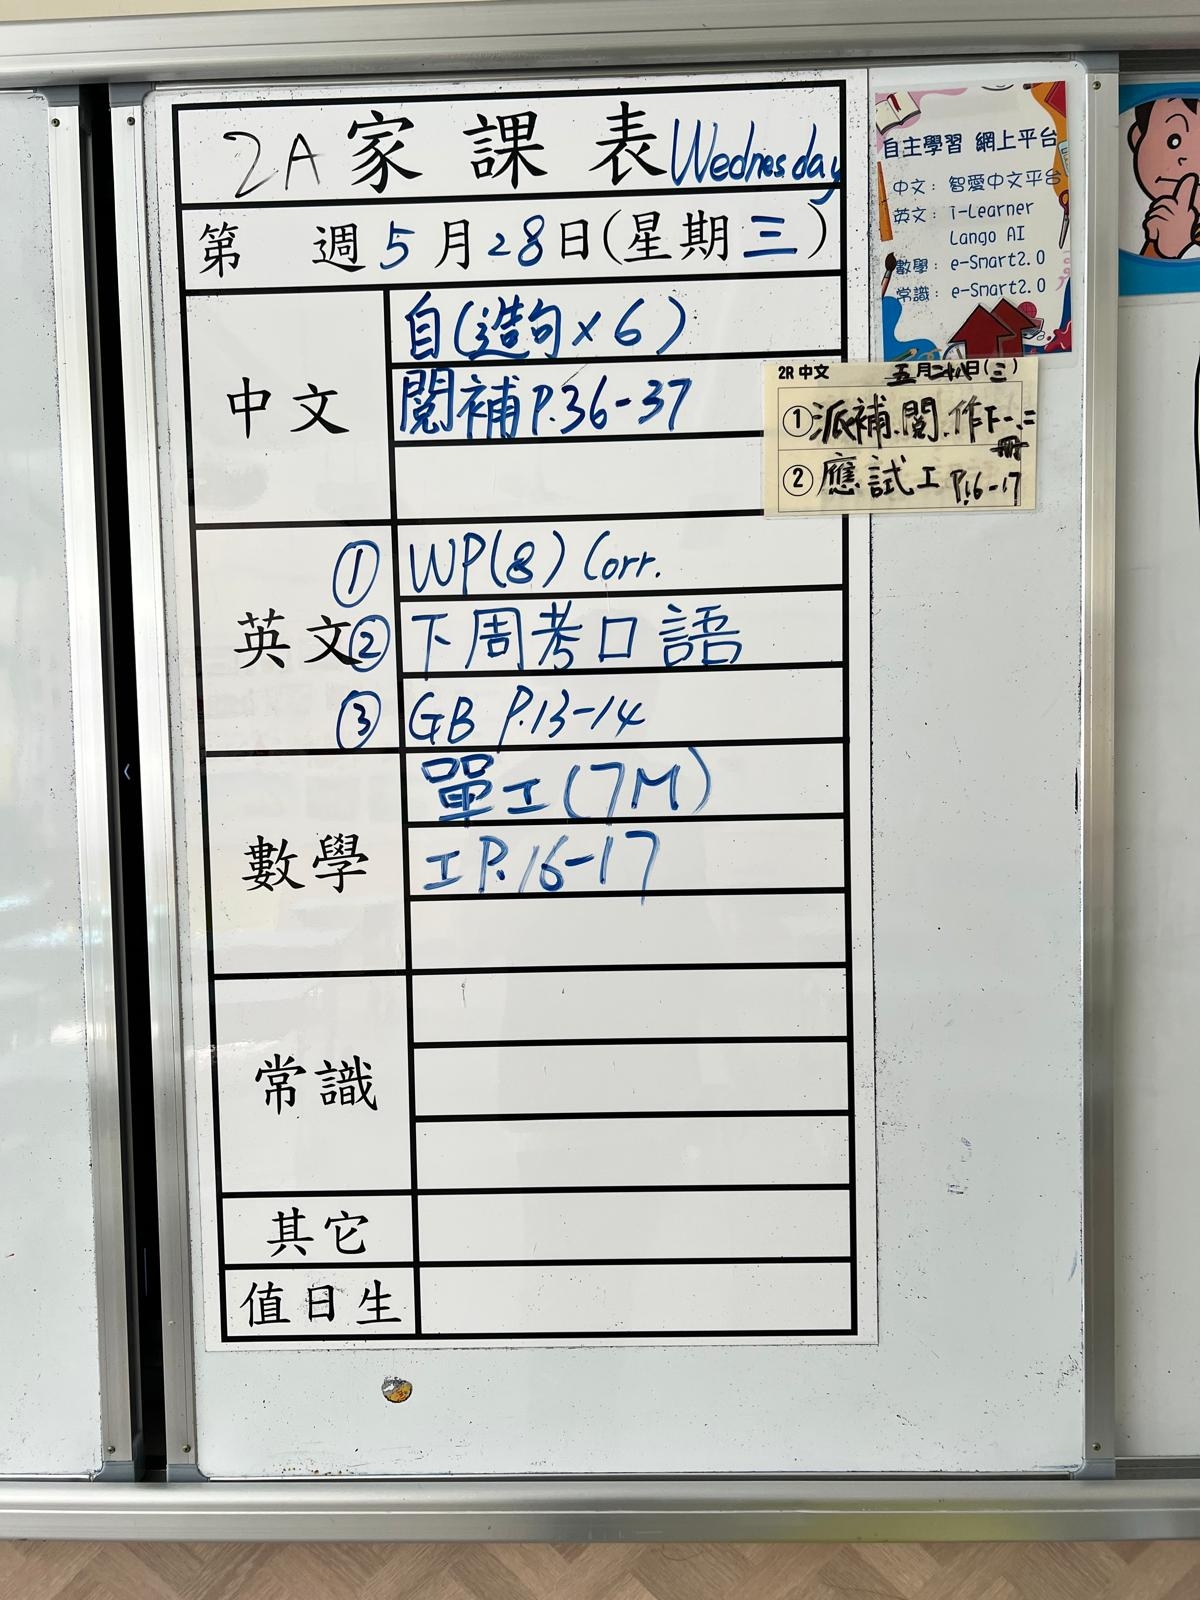 2A 家課表 Wednesday
第 週 5 月 28 日(星期 三)
中文
自(造句×6)
閱補P.36-37
英文
① WP(8) Corr.
② 下周考口語
③ GB P.13-14
數學
單工(7M)
工P.16-17
常識
其它
值日生
自主學習 網上平台
中文: 智愛中文平台
英文: i-Learner
Lango AI
數學: e-Smart2.0
常識: e-Smart2.0
2R 中文 五月二十八日(三)
①派補.閱.作下一.二冊
②應試工 P.16-17